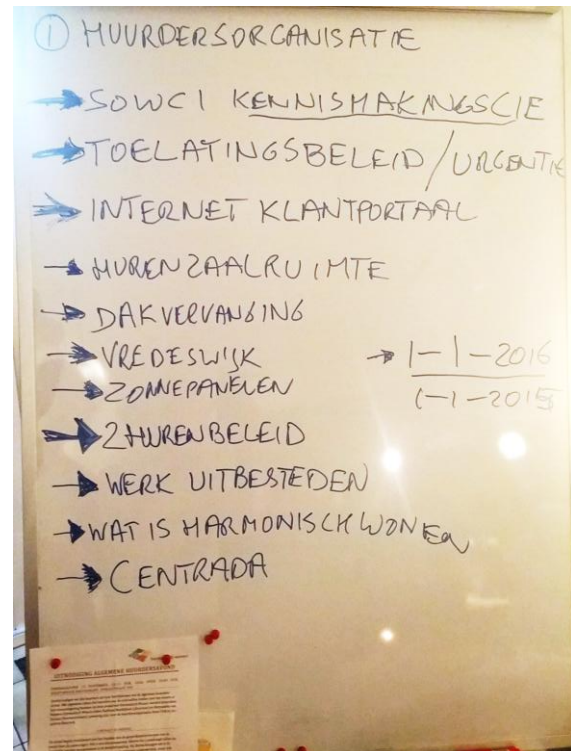 ① HUURDERSORGANISATIE
→ SOWCI KENNISMAKINGSCIE
→ TOELATINGSBELEID/URGENTIE
→ INTERNET KLANTPORTAAL
→ HUREN ZAALRUIMTE
→ DAKVERVANGING
→ VREDESWIJK → 1-1-2016
→ ZONNEPANELEN 1-1-2015
→ 2HURENBELEID
→ WERK UITBESTEDEN
→ WAT IS HARMONISCH WONEN
→ CENTRADA
UITNODIGING ALGEMENE HUURDERSAVOND